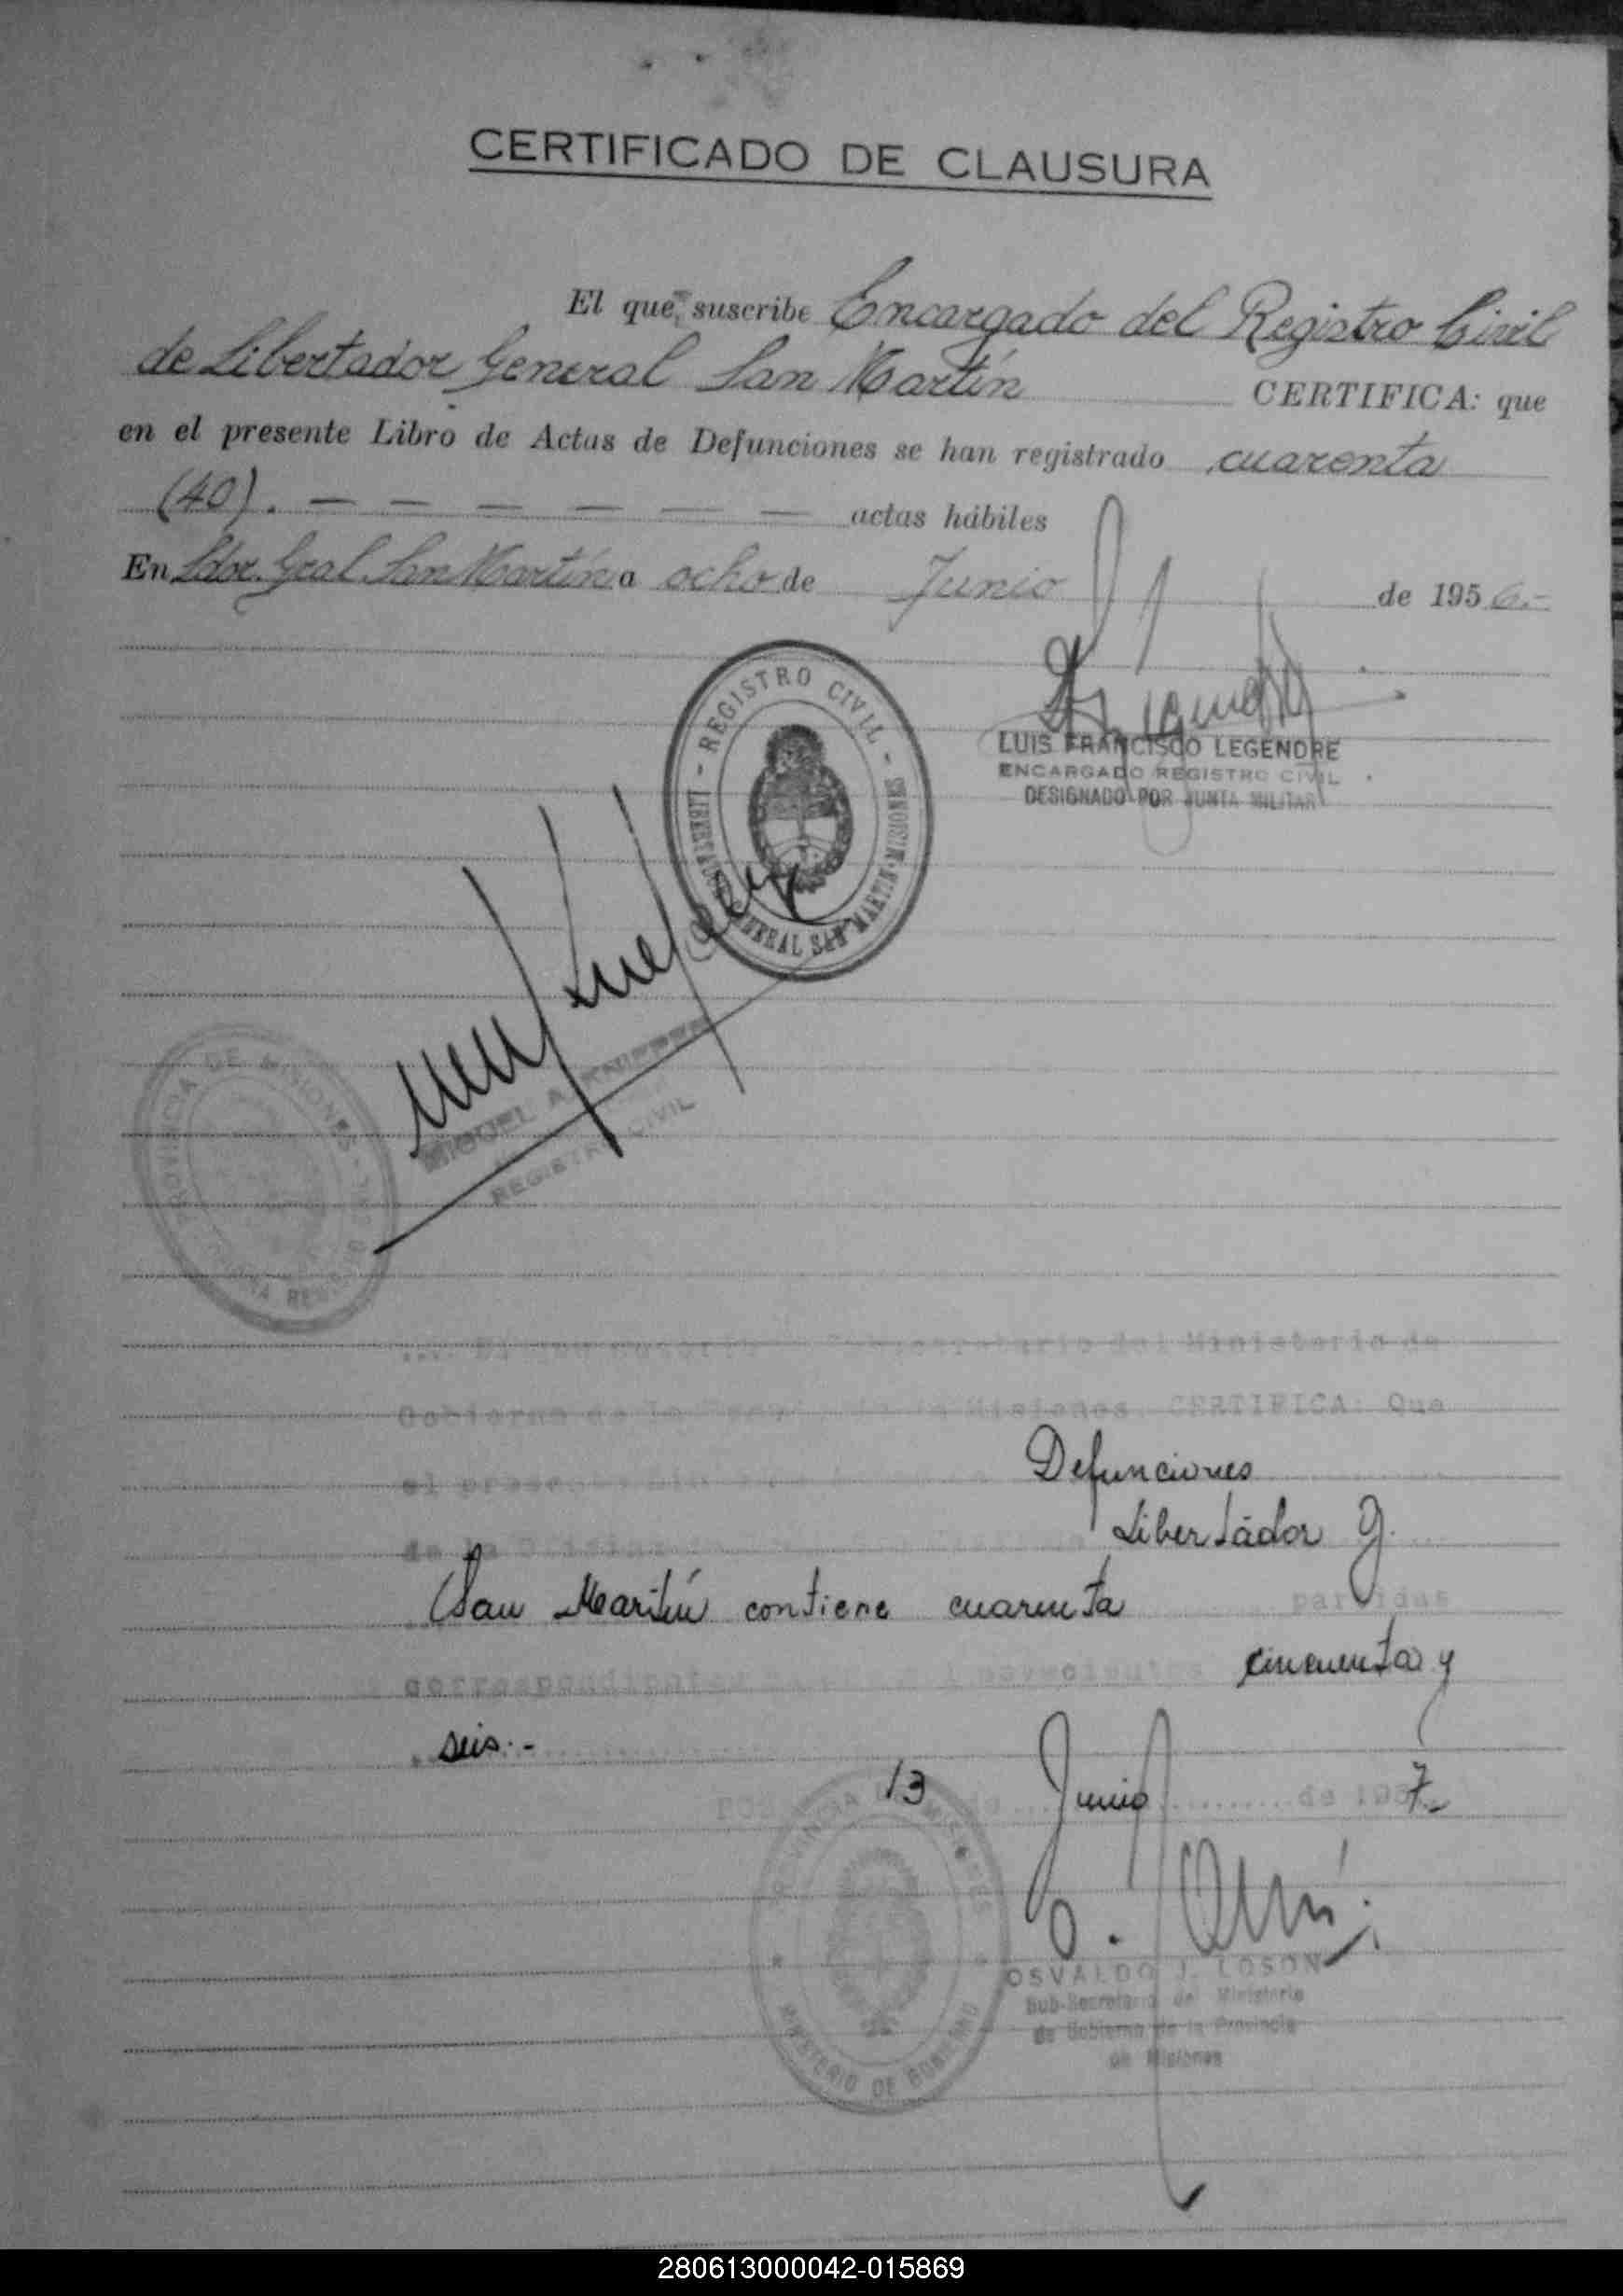 CERTIFICADO DE CLAUSURA
El que suscribe Encargado del Registro Civil
de Libertador General San Martín CERTIFICA: que
en el presente Libro de Actas de Defunciones se han registrado cuarenta
(40). — — — — — — actas hábiles
En Ldor. Gral. San Martín a ocho de Junio de 1956.-
- REGISTRO CIVIL -
LIBERTADOR GENERAL SAN MARTIN - MISIONES
LUIS FRANCISCO LEGENDRE
ENCARGADO REGISTRO CIVIL
DESIGNADO POR JUNTA MILITAR
MIGUEL A. KNIPPER
REGISTRO CIVIL
PROVINCIA DE MISIONES
del Ministerio de
Gobierno de la Misiones, CERTIFICA: Que
el presente Defunciones
de la Libertador G.
San Martín contiene cuarenta partidas
correspondientes novecientos cincuenta y
seis.-
13 Junio de 1957.-
PROVINCIA DE MISIONES
MINISTERIO DE GOBIERNO
OSVALDO J. LOSON
Sub-Secretario del Ministerio
de Gobierno de la Provincia
de Misiones
280613000042-015869